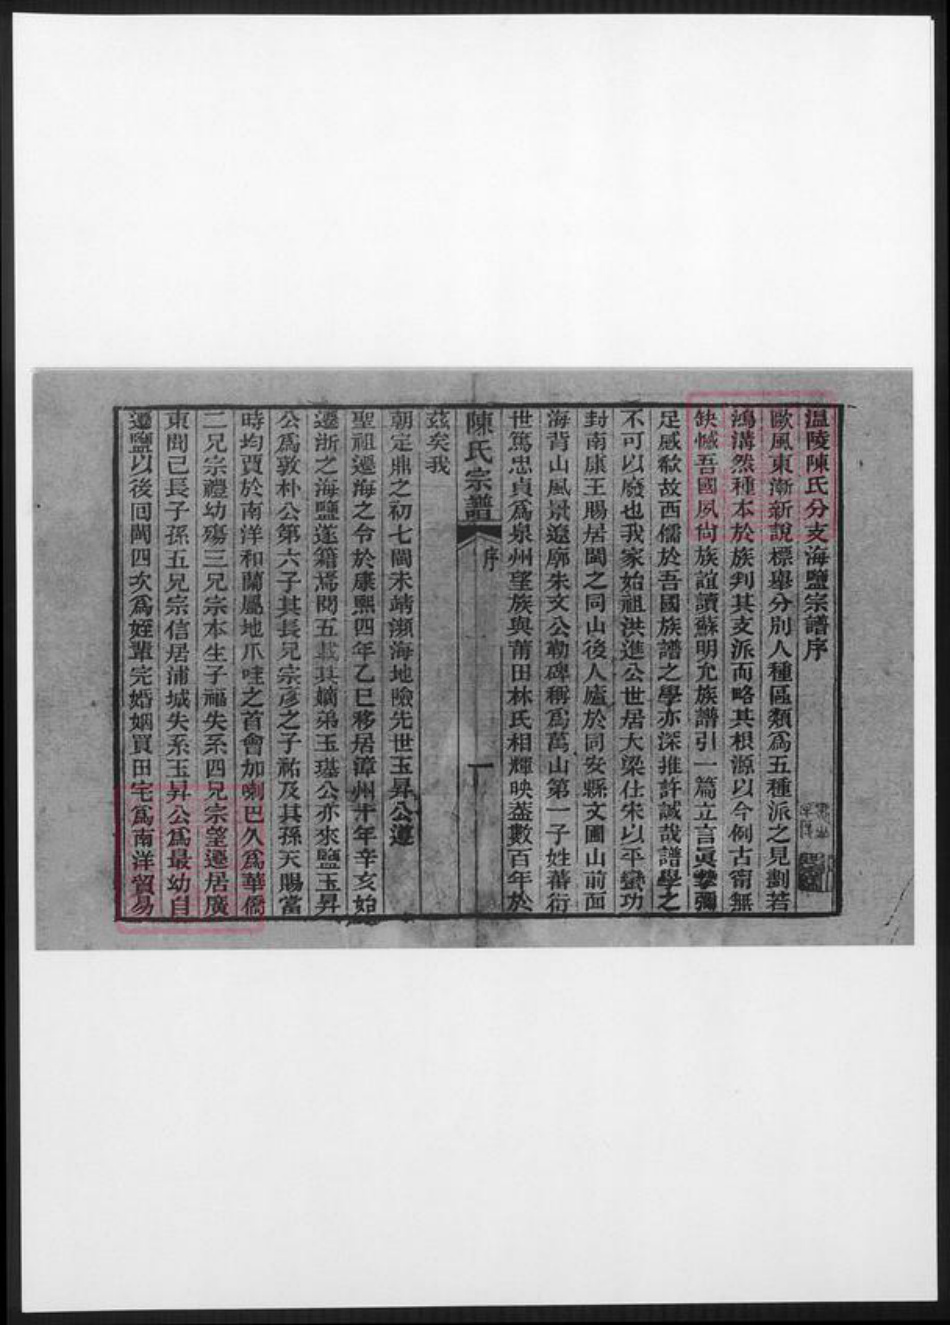 溫陵陳氏分支海鹽宗譜序
歐風東漸新說標舉分別人種區類爲五種派之見劃若
鴻溝然種本於族判其支派而略其根源以今例古甯無
缺憾吾國夙尙族誼讀蘇明允族譜引一篇立言眞摯彌
足感歎故西儒於吾國族譜之學亦深推許誠哉譜學之
不可以廢也我家始祖洪進公世居大梁仕宋以平蠻功
封南康王賜居閩之同山後人廬於同安縣文圃山前面
海背山風景遼廓朱文公勒碑稱爲萬山第一子姓蕃衍
世篤忠貞爲泉州望族與莆田林氏相輝映蓋數百年於
茲矣我
陳氏宗譜 序 一
朝定鼎之初七閩未靖瀕海地險先世玉昇公遵
聖祖遷海之令於康熙四年乙巳移居漳州十年辛亥始
遷浙之海鹽遂籍焉閱五載其嫡弟玉璂公亦來鹽玉昇
公爲敦朴公第六子其長兄宗彥之子祐及其孫天賜當
時均賈於南洋和蘭屬地爪哇之首會加喇巴久爲華僑
二兄宗禮幼殤三兄宗本生子福失系四兄宗望遷居廣
東間己長子孫五兄宗信居浦城失系玉昇公爲最幼自
遷鹽以後回閩四次爲姪輩完婚姻買田宅爲南洋貿易